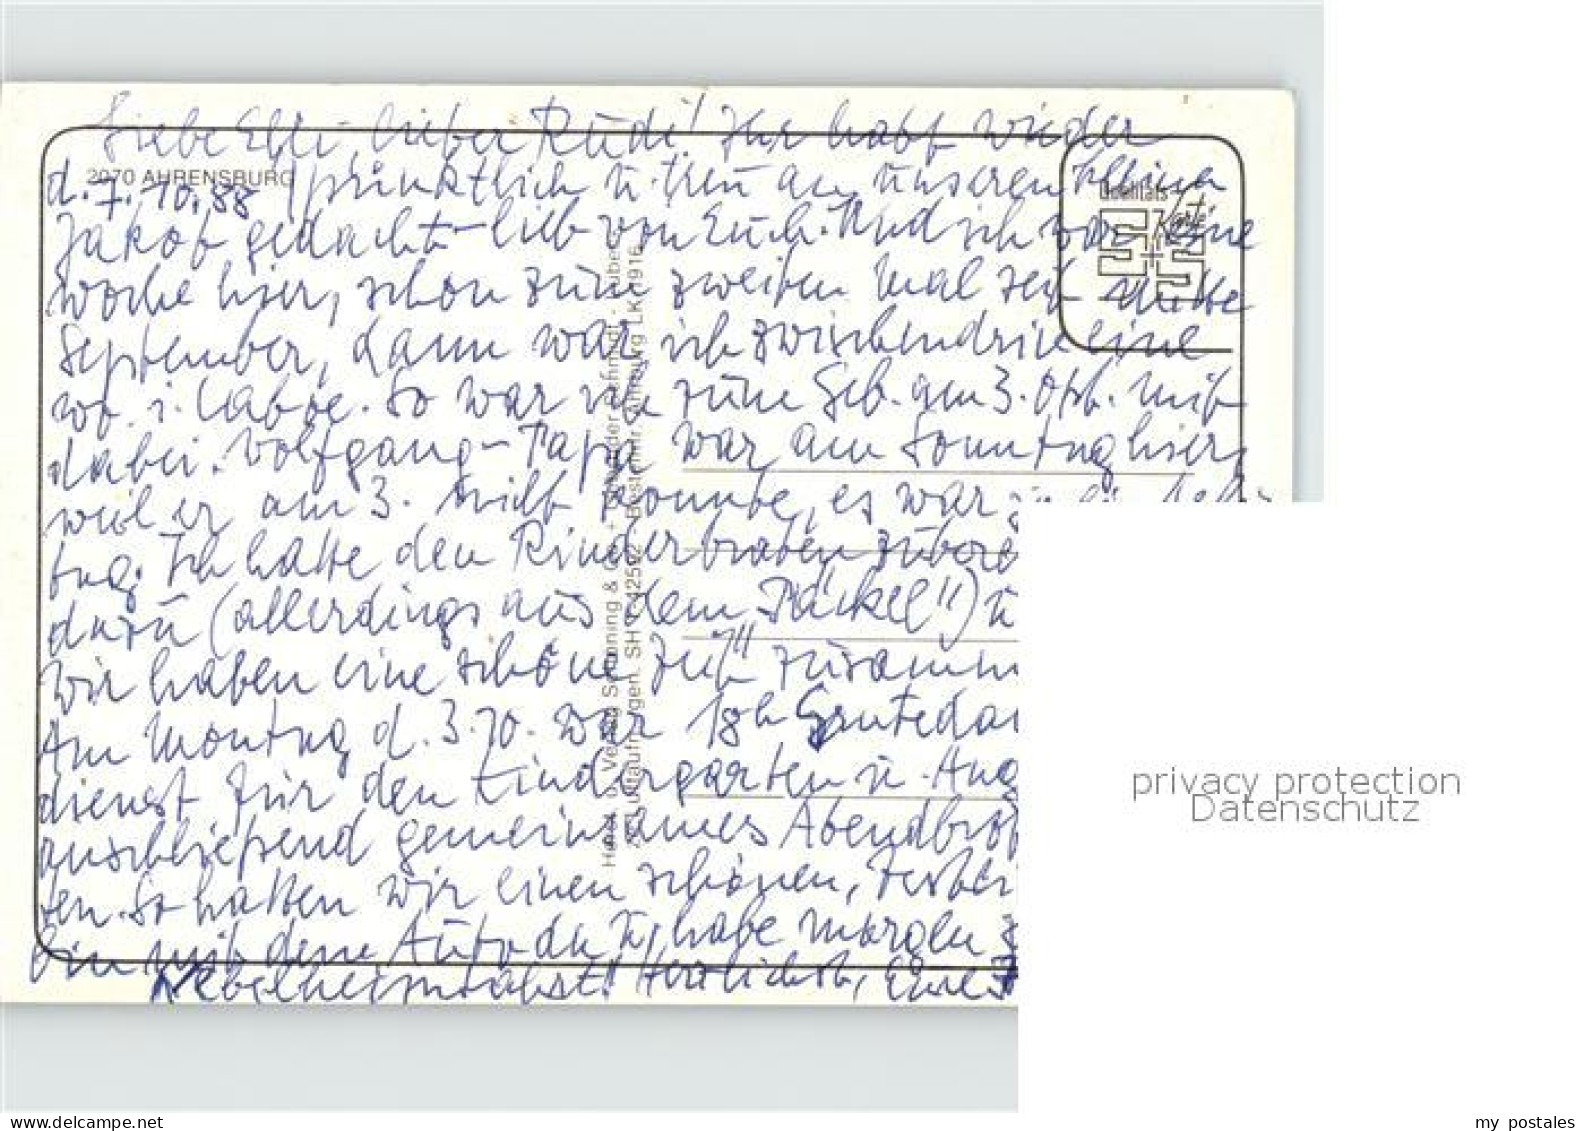 Liebe Elli, lieber Rudi! Ihr habt wieder
2070 AHRENSBURG
d. 7.10.88 pünktlich u. treu an unseren kleinen
Qualitäts
Karte
S+S
Jakob gedacht - lieb von Euch. Und ich war eine
Woche hier, schon zum zweiten Mal seit Mitte
September, dann war ich zwischendrin eine
Wo. i. Laboe. So war ich zum Geb. am 3. Okt. mit
dabei. Wolfgang - Papa war am Sonntag hier,
weil er am 3. nicht konnte, es war
tag. Ich hatte den Rinderbraten zubere
dazu (allerdings aus dem "Päckel") u
Wir haben eine schöne Zeit zusamm
Am Montag d. 3.10. war 18h Erntedan
dienst für den Kindergarten u. Ang
anschließend gemeinsames Abendbrot
ten. So hatten wir einen schönen,
Bin mit dem Auto da u. habe morgen
Herzlichst, Eure
Schöning & Co. + Gebrüder Schmidt · Lübeck
Luftaufn. gen. SH · Bestellnr. Ahrensburg LK 1916
privacy protection
Datenschutz
my postales